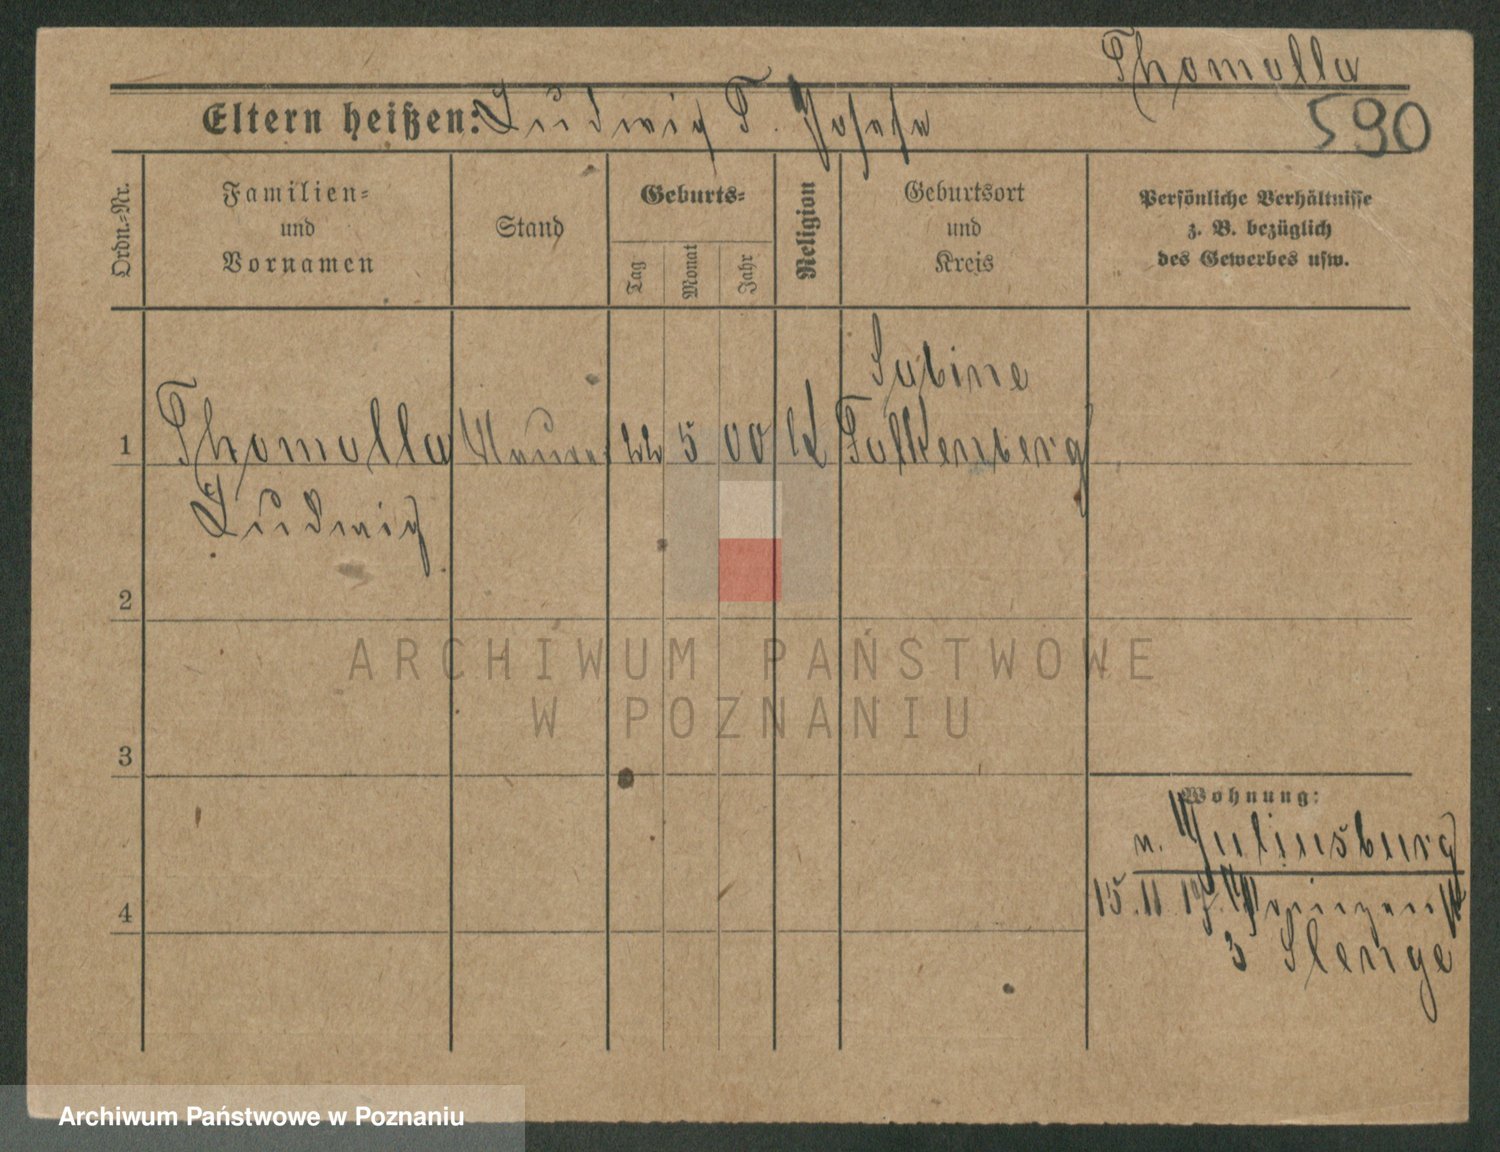 Thomalla
590
Eltern heißen: Ludwig T. Josefa
Ordn.=Nr.
Familien=
und
Vornamen
Stand
Geburts=
Tag
Monat
Jahr
Religion
Geburtsort
und
Kreis
Persönliche Verhältnisse
z. B. bezüglich
des Gewerbes usw.
Sabine
1 Thomalla Maurer 22 5 00 K Falkenberg
Ludwig
2
ARCHIWUM PAŃSTWOWE
W POZNANIU
3
Wohnung:
n. Juliusburg
15. 11. 19. Prinzenstr
4
3 Slenge
Archiwum Państwowe w Poznaniu